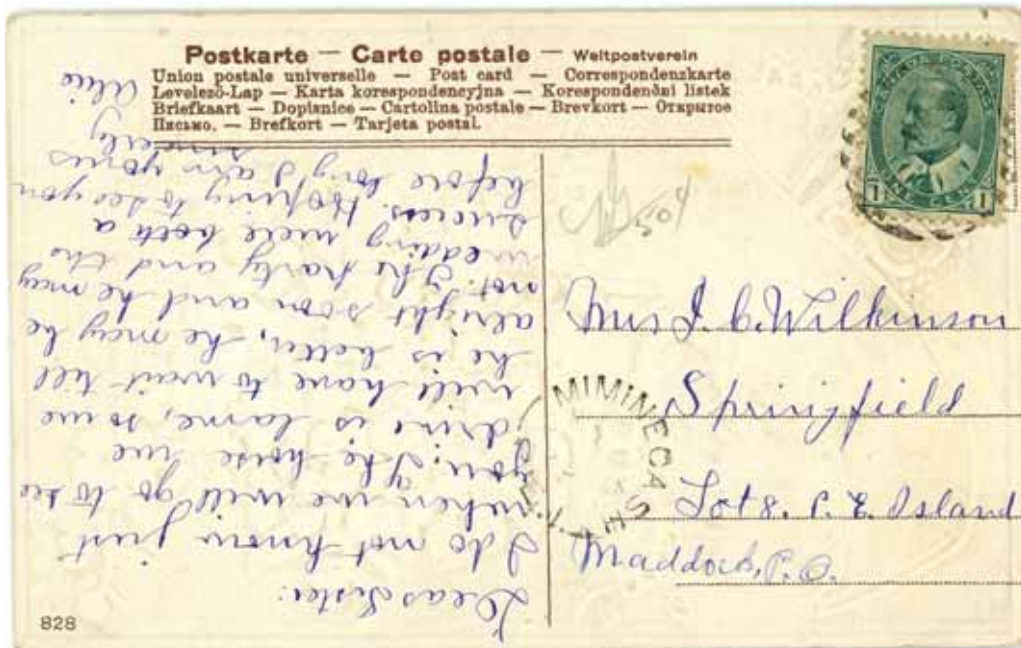 Postkarte — Carte postale — Weltpostverein
Union postale universelle — Post card — Correspondenzkarte
Levelező-Lap — Karta korespondencyjna — Korespondenčni listek
Briefkaart — Dopisnice — Cartolina postale — Brevkort — Открытое
Письмо. — Brefkort — Tarjeta postal.
CANADA POSTAGE
1 ONE CENT 1
Mrs J. C. Wilkinson
Springfield
Lot 8. P. E. Island
Maddock, P. O.
MIMINEGASH
828
Dear Sister:
I do not know just
when we will go to see
you. The horse we
drive is lame, so we
will have to wait till
he is better, he may be
alright soon and he may
not. The party and the
wedding were both a
success. Hoping to see you
before long I am yours
sincerely